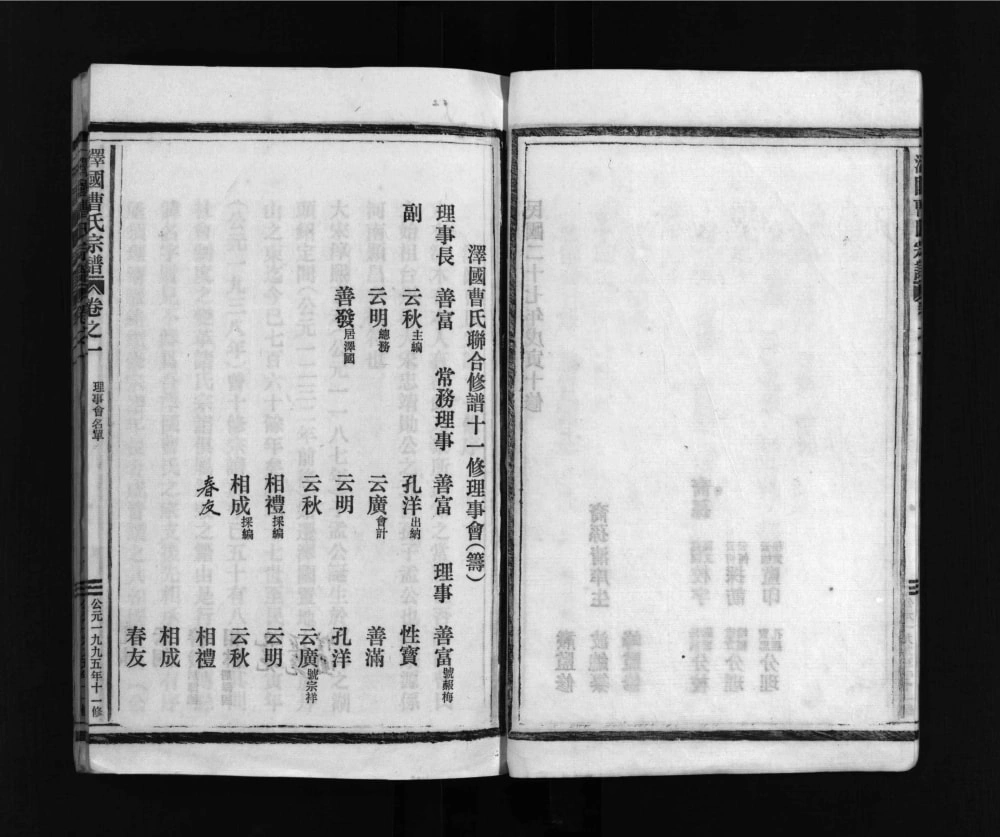 澤國曹氏聯合修譜十一修理事會(籌)
理事長 善富 常務理事 善富 理事 善富號巖梅
副 云秋主編 孔洋出納 性寶
云明總務 云廣會計 善滿
善發居澤國 云明 孔洋
云秋 云廣號宗祥
相禮採編 云明
相成採編 云秋
春友 相禮
相成
春友
澤國曹氏宗譜 卷之一 理事會名單 公元一九九五年十一修